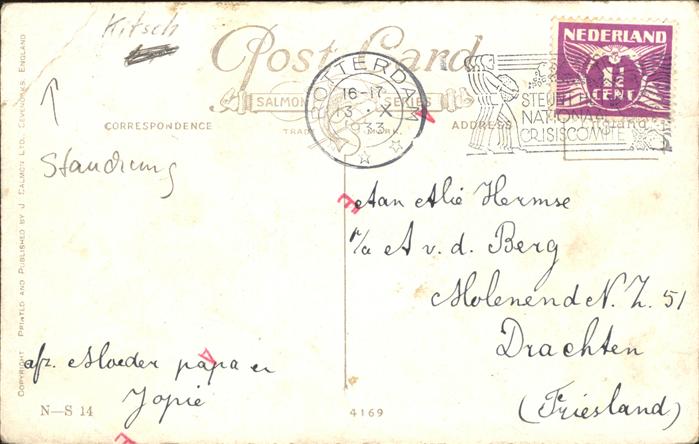 Kitsch
Post Card
SALMON SERIES
TRADE MARK.
CORRESPONDENCE
ADDRESS
ROTTERDAM
16-17
13 X
1933
NEDERLAND
1½
CENT
STEUNT
NATIONAAL
CRISISCOMITE
Standrung
Aan Alie Hermse
p/a A v. d. Berg
Molenend N.Z. 51
Drachten
(Friesland)
afz. Moeder papa en
Jopie
N—S 14
4169
COPYRIGHT PRINTED AND PUBLISHED BY J. SALMON LTD., SEVENOAKS, ENGLAND